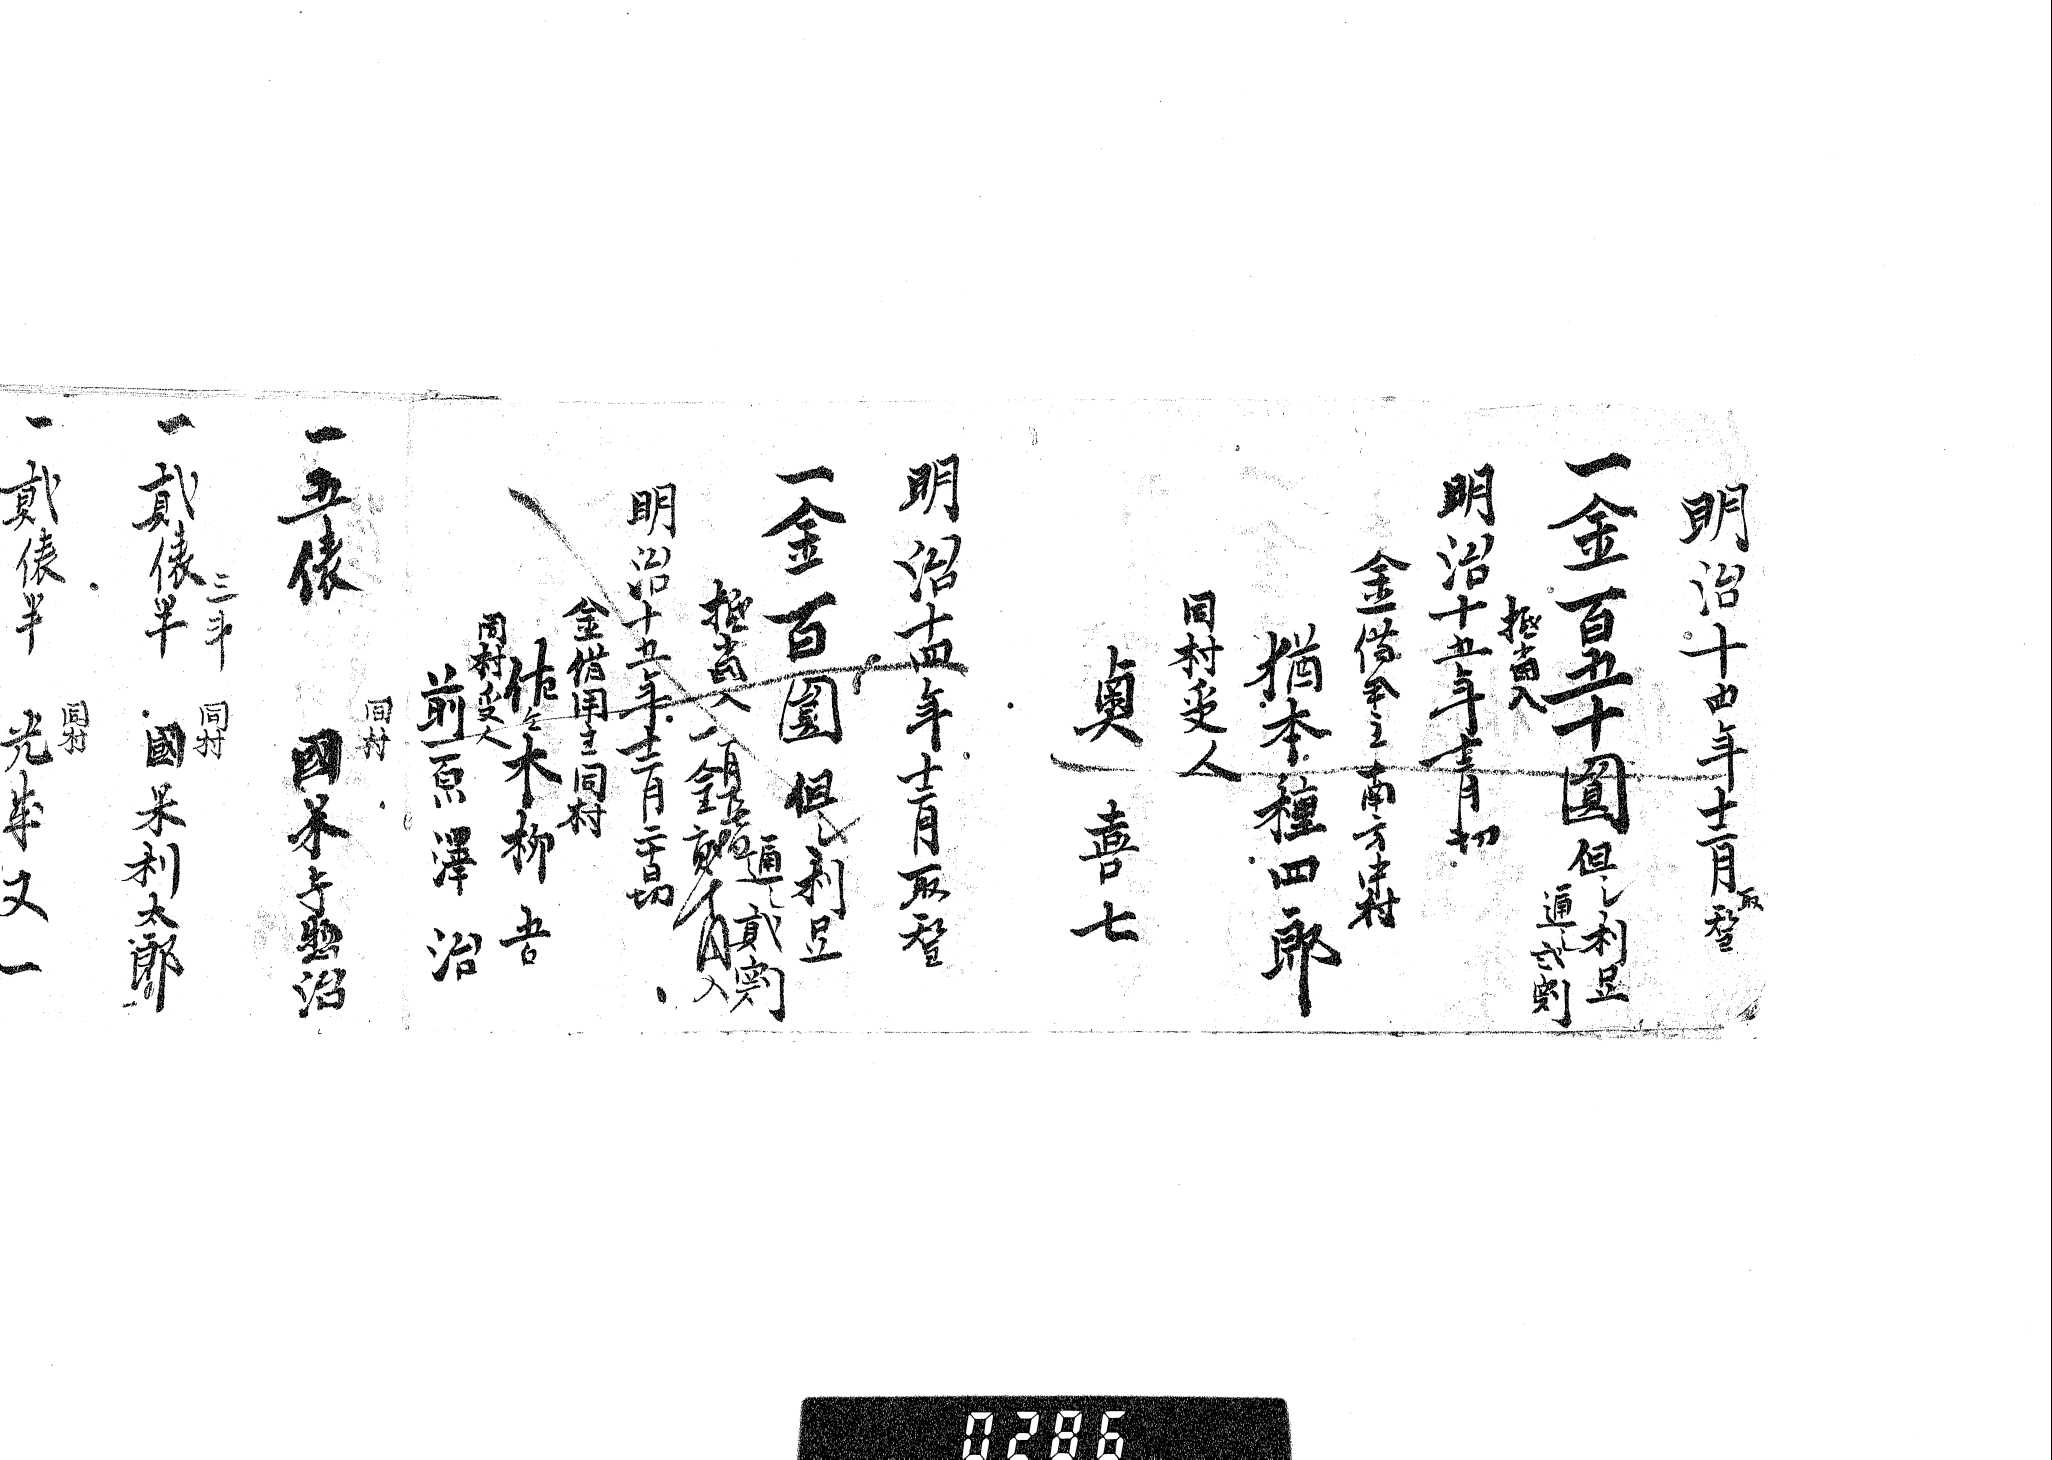 明治十四年十二月取登
一金百五十圓 但シ利足
通シ弐割
抵当入
明治十五年十二月切
金借用主南方中村
猶本種四郎
同村受人
奥喜七
明治十四年十二月取登
一金百圓 但シ利足
通シ貳割
抵当入
明治十五年十二月二十日切
金借用主同村
佐々木柳吾
同村受人
前原澤治
一五俵
同村
國米与惣治
三斗
一貳俵半
同村
國米利太郎
一貳俵半
同村
又一
0286